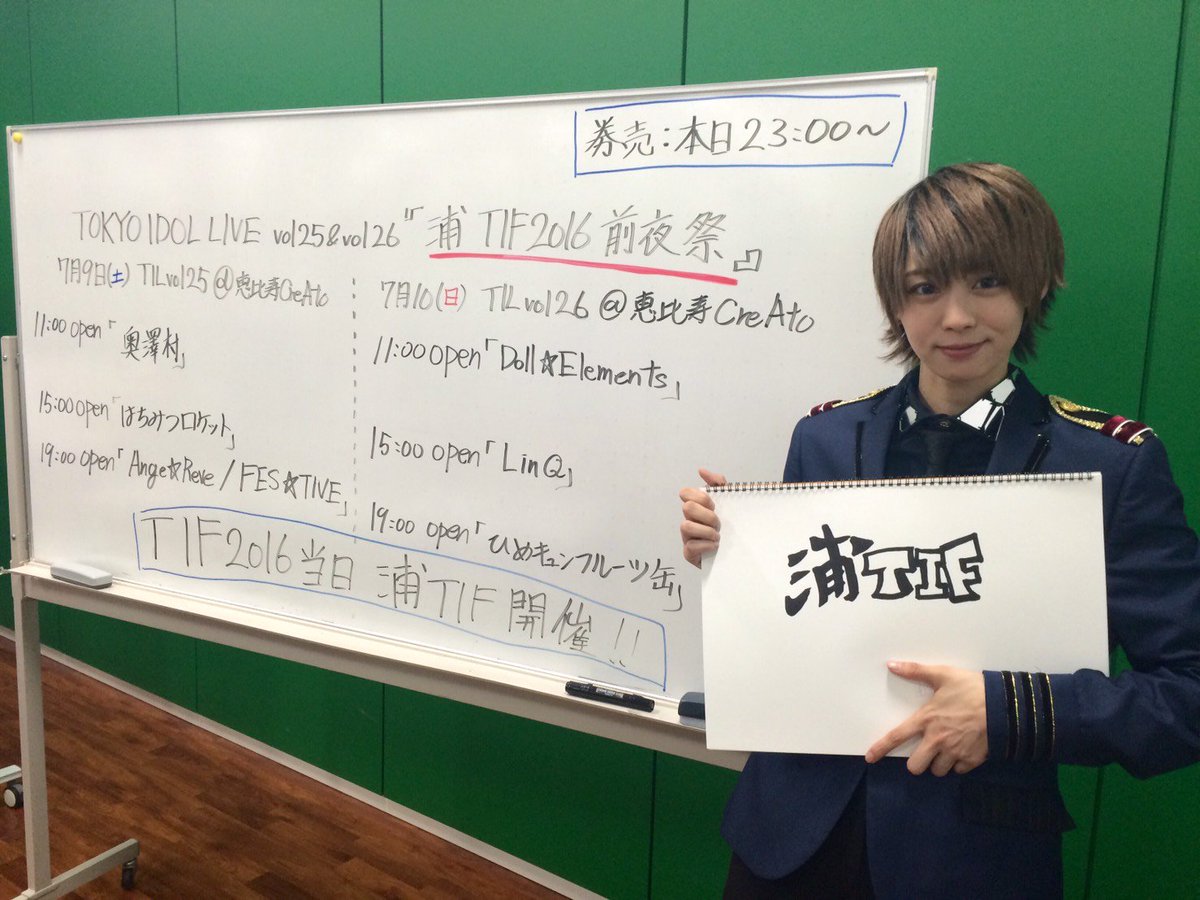 券売：本日23:00～
TOKYO IDOL LIVE vol25&vol26『浦 TIF2016 前夜祭』
7月9日(土) TILvol25 @恵比寿CreAto
11:00 open「奥澤村」
15:00 open「はちみつロケット」
19:00 open「Ange☆Reve / FES☆TIVE」
7月10(日) TILvol26 @恵比寿CreAto
11:00 open「Doll☆Elements」
15:00 open「LinQ」
19:00 open「ひめキュンフルーツ缶」
TIF2016当日 浦TIF 開催!!
浦TIF